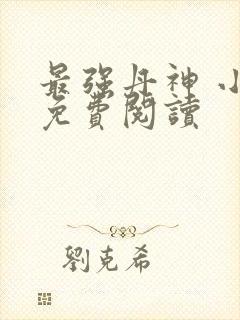 最強丹神 小
免費閱讀
劉克希